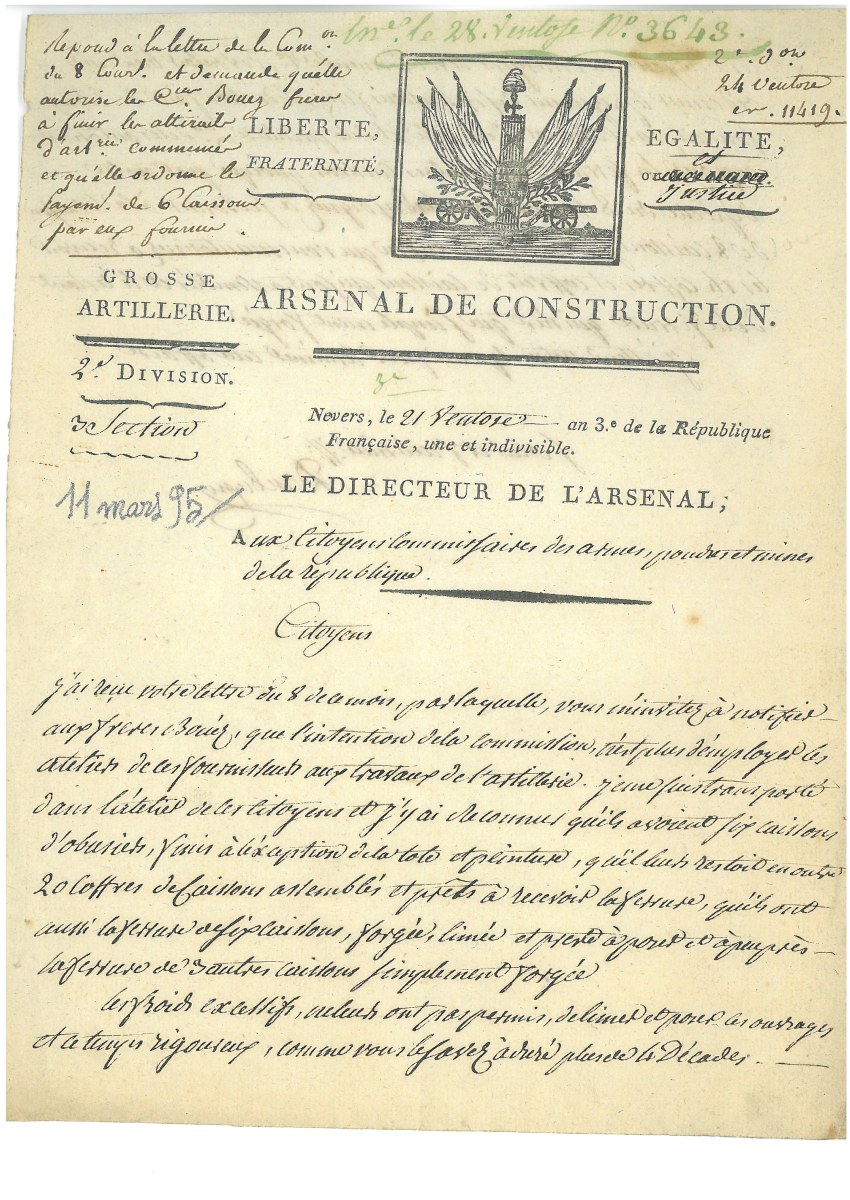 Enré le 28. Ventose N.º 3643.
Repond à la lettre de la Com.on
du 8 Cour.t et demande qu'elle
autorise les C.ens Bouez freres
à finir les attirails
d'art.rie commencés
et qu'elle ordonne le
payem.t de 6 Caissons
par eux fournis.
2.e D.on
24 Ventose
en. 11419.
LIBERTE,
FRATERNITÉ,
EGALITE,
et
ou
Justice
GROSSE
ARTILLERIE.
ARSENAL DE CONSTRUCTION.
2.e DIVISION.
3 Section
3e
Nevers, le 21 Ventose an 3.e de la République
Française, une et indivisible.
11 mars 95/
LE DIRECTEUR DE L'ARSENAL;
Aux Citoyens Commissaires des armes, poudres et mines
de la république.
Citoyens
j'ai reçu votre lettre du 8 de ce mois, par laquelle, vous m'invitez à notifier
aux freres Bouéz, que l'intention de la commission, n'est plus d'employer les
ateliers de ces fournisseurs aux travaux de l'artillerie. je me suis transporté
dans l'atelier de ces Citoyens et j'y ai reconnu qu'ils avoient six caissons
d'obusiers, finis à l'éxception de la tole et peinture, qu'il leurs restoit en outre
20 Coffres de Caissons assemblés et prêts à recevoir la ferrure, qu'ils ont
aussi la ferrure de six caissons, forgée, limée et prete à poser et à peu près
la ferrure de 3 autres caissons simplement forgée
les froids excessifs, ne leurs ont pas permis, de limer et poser ces ouvrages
et ce temps rigoureux, comme vous le savez à duré plus de 4 Décades.